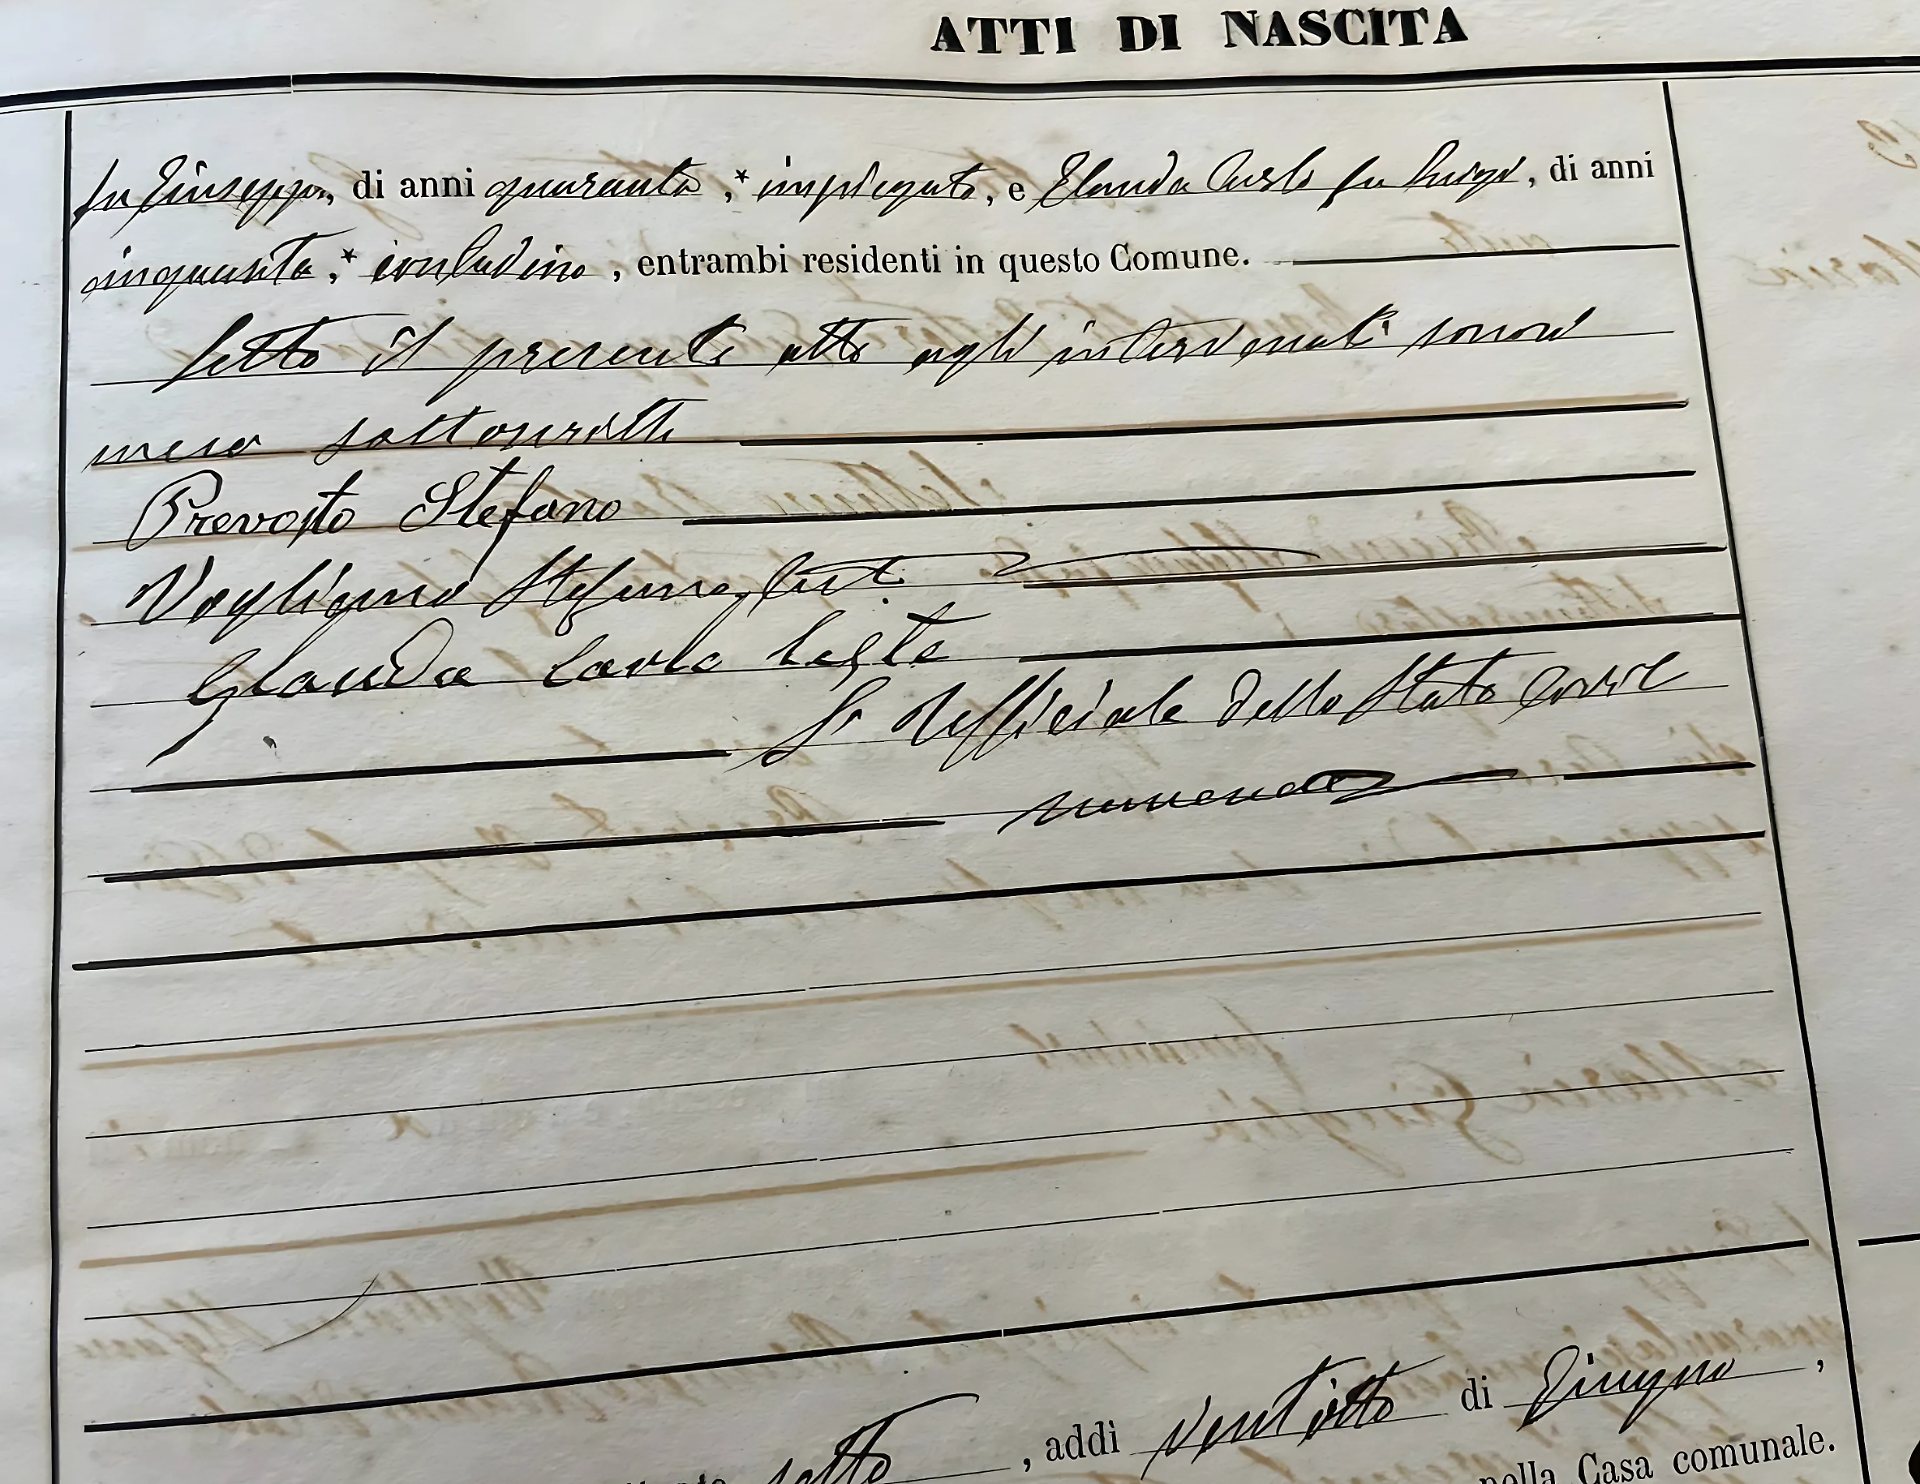 ATTI DI NASCITA
fu Giuseppe, di anni quaranta,* impiegato, e Glauda Carlo fu Luigi, di anni
cinquanta,* contadino, entrambi residenti in questo Comune.
Letto il presente atto agli intervenuti sonosi
meco sottoscritti
Prevosto Stefano
Vogliano Stefano, test.
Glauda Carlo teste
L'Ufficiale dello Stato Civile
sette, addì ventotto di Giugno,
nella Casa comunale.